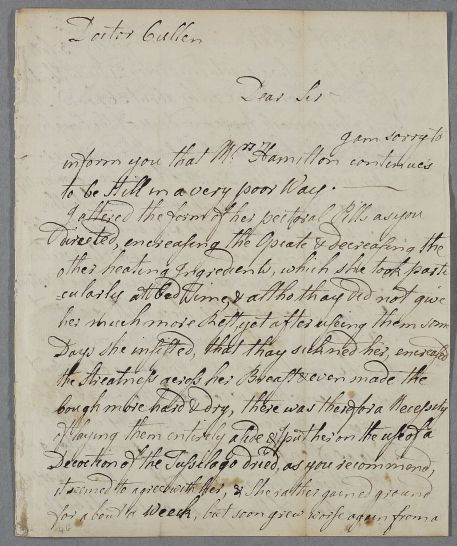 Doctor Cullen
Dear Sir
I am sorry to
inform you that Mrs Hamilton continues
to be still in a very poor Way.
I altered the form of her pectoral Pills as you
Directed, encreasing the Opiate & decreasing the
other heating Ingredients, which she took parti
=cularly at bed time, & altho thay did not give
her much more Rest, yet after useing them some
Days she insisted, that thay sickned her, encreased
the Streatness across her Breast & even made the
Cough more hard & dry, there was therefor a Necessity
of laying them entirely aside & I put her on the use of a
Decoction of the Tussilago dried, as you recommend,
it seemed to agree with her, & She rather gained ground
for about a Week, but soon grew worse again from a